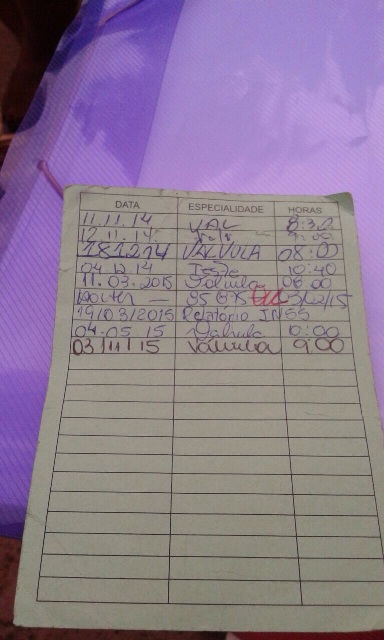 DATA ESPECIALIDADE HORAS
11.11.14 VAL 8:30
12.11.14
181214 VALVULA 08:00
04.12.14 10:40
11.03.2015 Válvula
19/03/2015 Relatório INSS
04.05.15 Válvula 10:00
03/11/15 Válvula 9:00